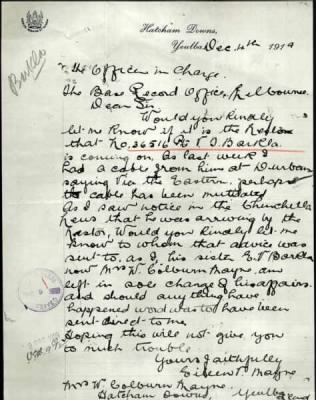 Hatcham Downs,
Yeulba Dec. 4th 1919
Barkla
The Officer in Charge.
The Base Record Office, Melbourne
Dear Sir
Would you kindly
let me know if it is the Nestor
that No, 36516 V. J. Barkla.
is coming on, as last week I
had a cable from him at Durban
saying via the Eastern, perhaps
cable has been mutilated
As I saw notice in the Chinchilla
News that he was arriving by the
Nestor, Would you kindly let me
know to whom that advice was
sent to. as I, his sister E. V Barkla
now Mrs W. Colburn Mayne, am
left in sole charge of his affairs
and should anything have
happened word was to have been
sent direct to me,
Hoping this will not give you
to much trouble
Yours faithfully
Eileen V Mayne
Mrs W Colburn Mayne.
Hatcham Downs, Yeulba